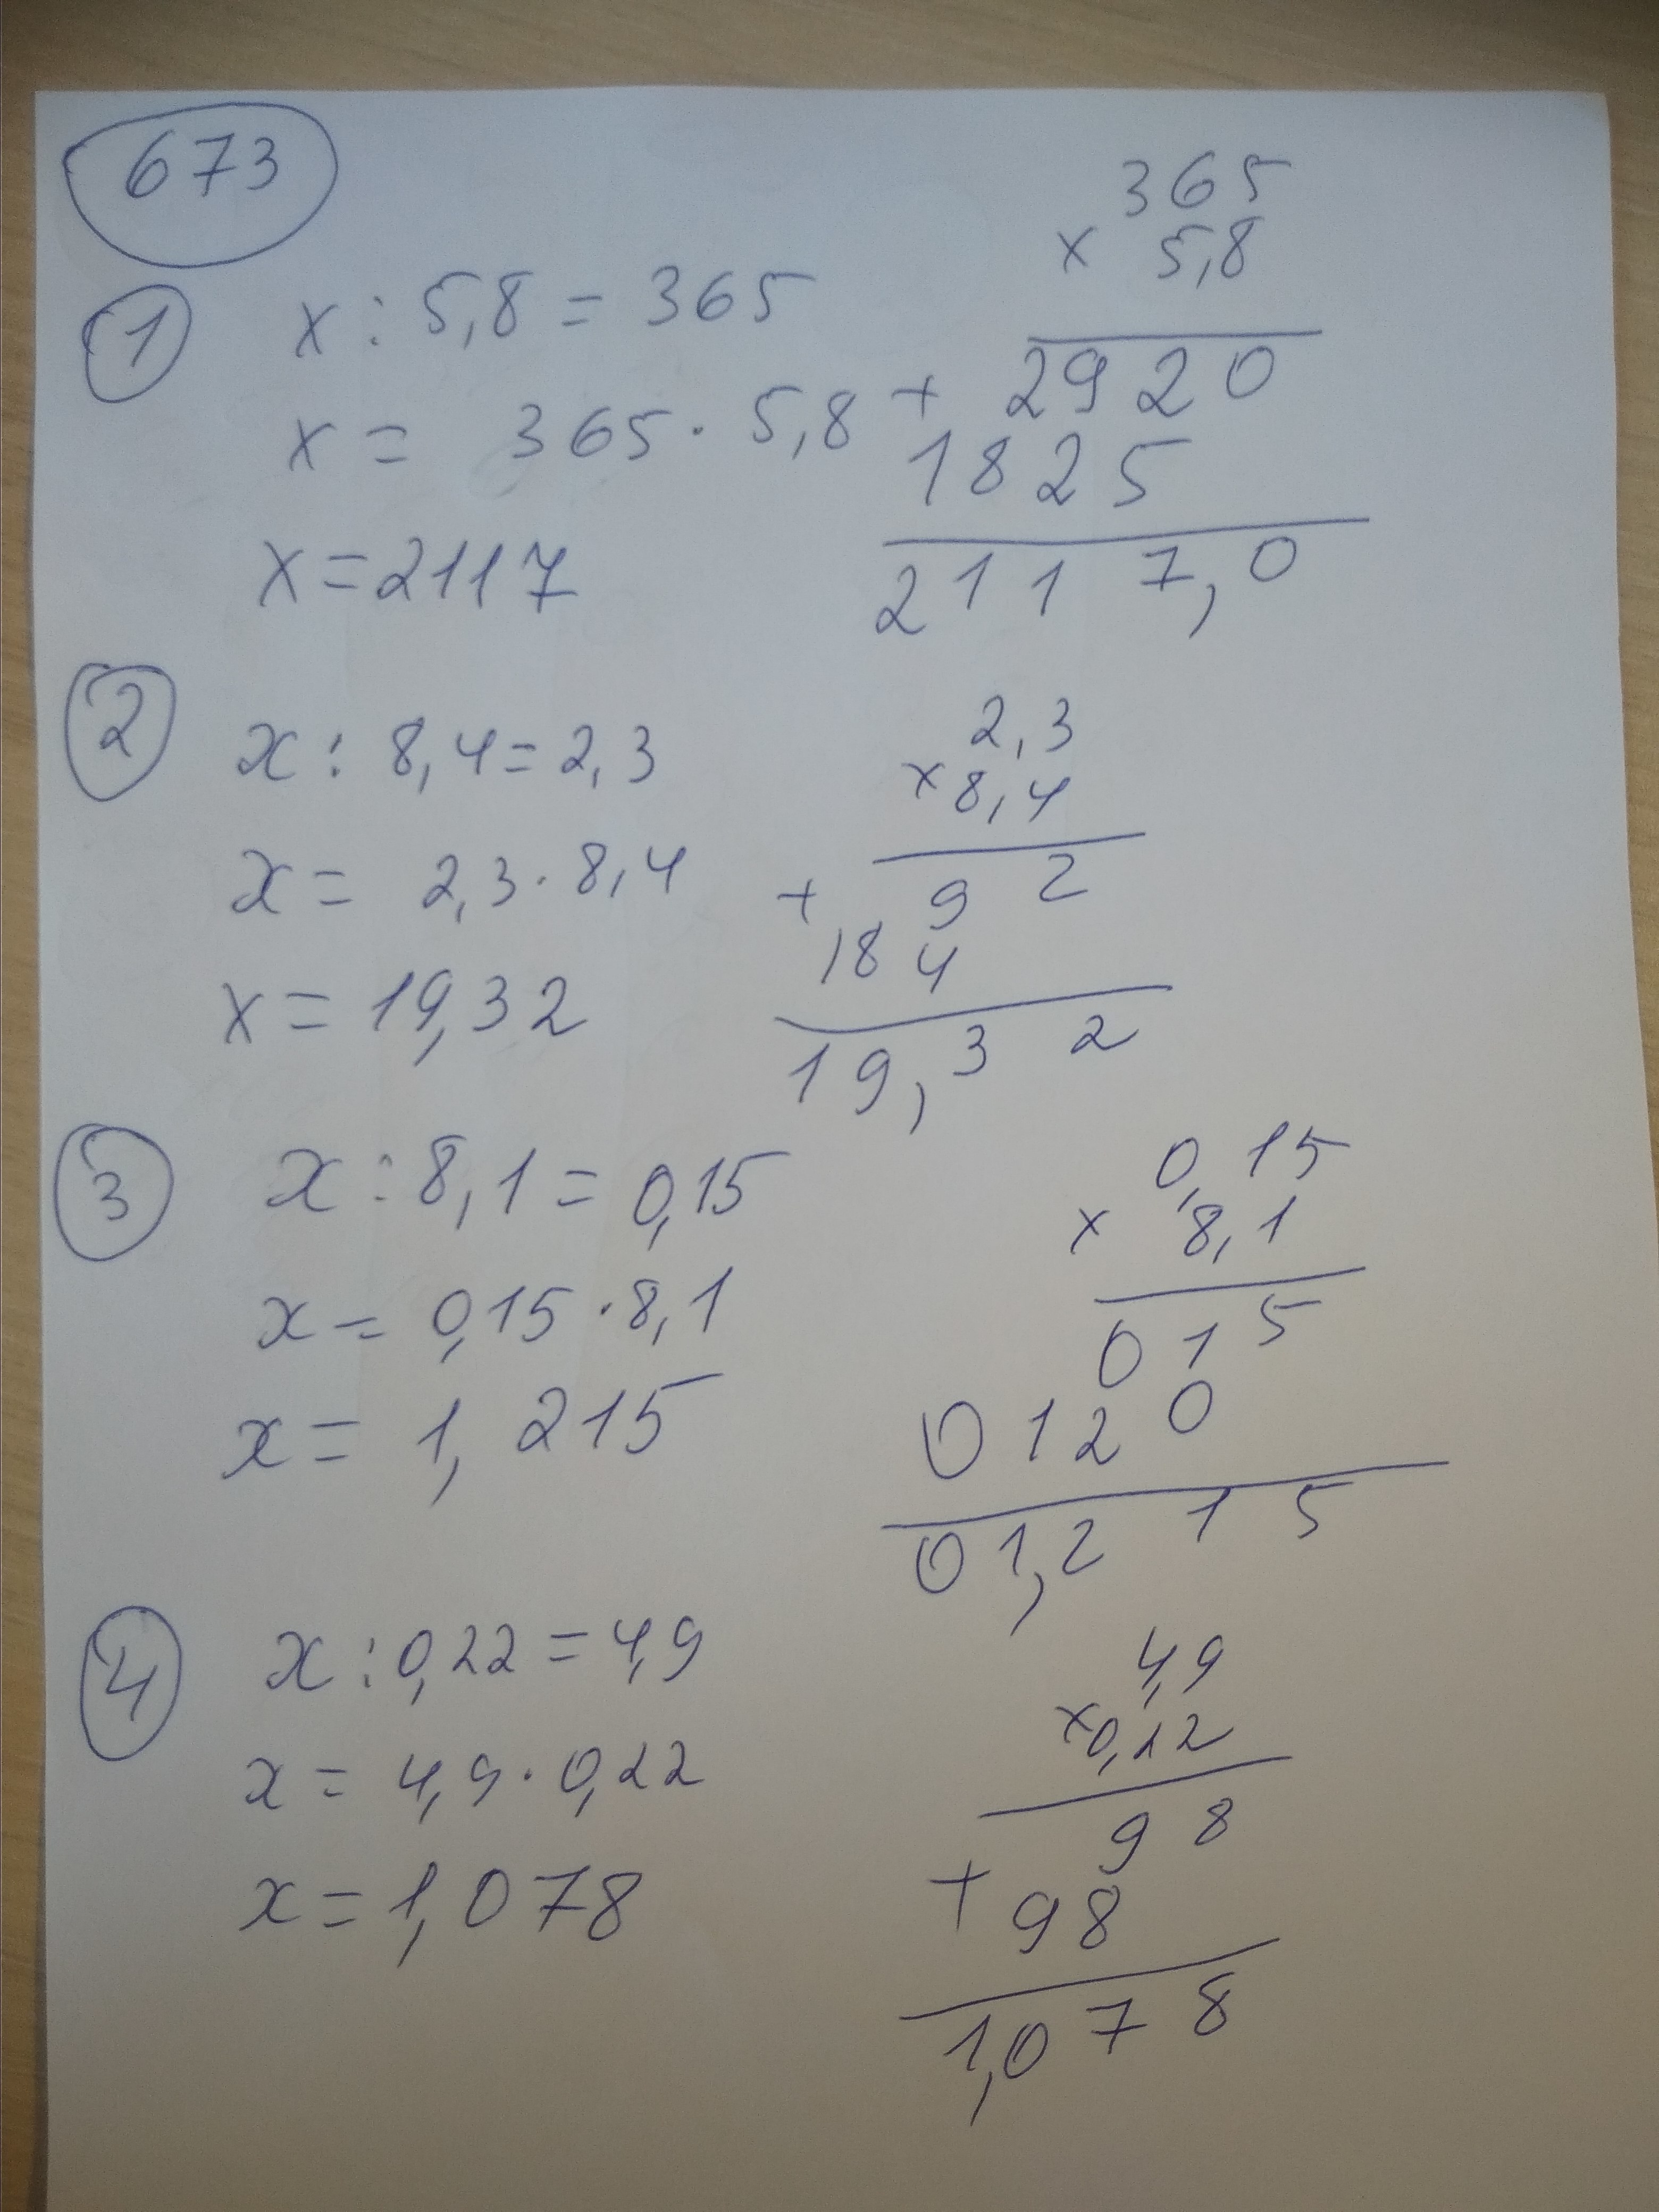 673
1
x : 5,8 = 365
x = 365 · 5,8
x = 2117
365
x 5,8
+ 2920
1825
2117,0
2
x : 8,4 = 2,3
x = 2,3 · 8,4
x = 19,32
2,3
x 8,4
+ 92
184
19,32
3
x : 8,1 = 0,15
x = 0,15 · 8,1
x = 1,215
0,15
x 8,1
015
0120
01,215
4
x : 0,22 = 4,9
x = 4,9 · 0,22
x = 1,078
4,9
x 0,22
98
+ 98
1,078